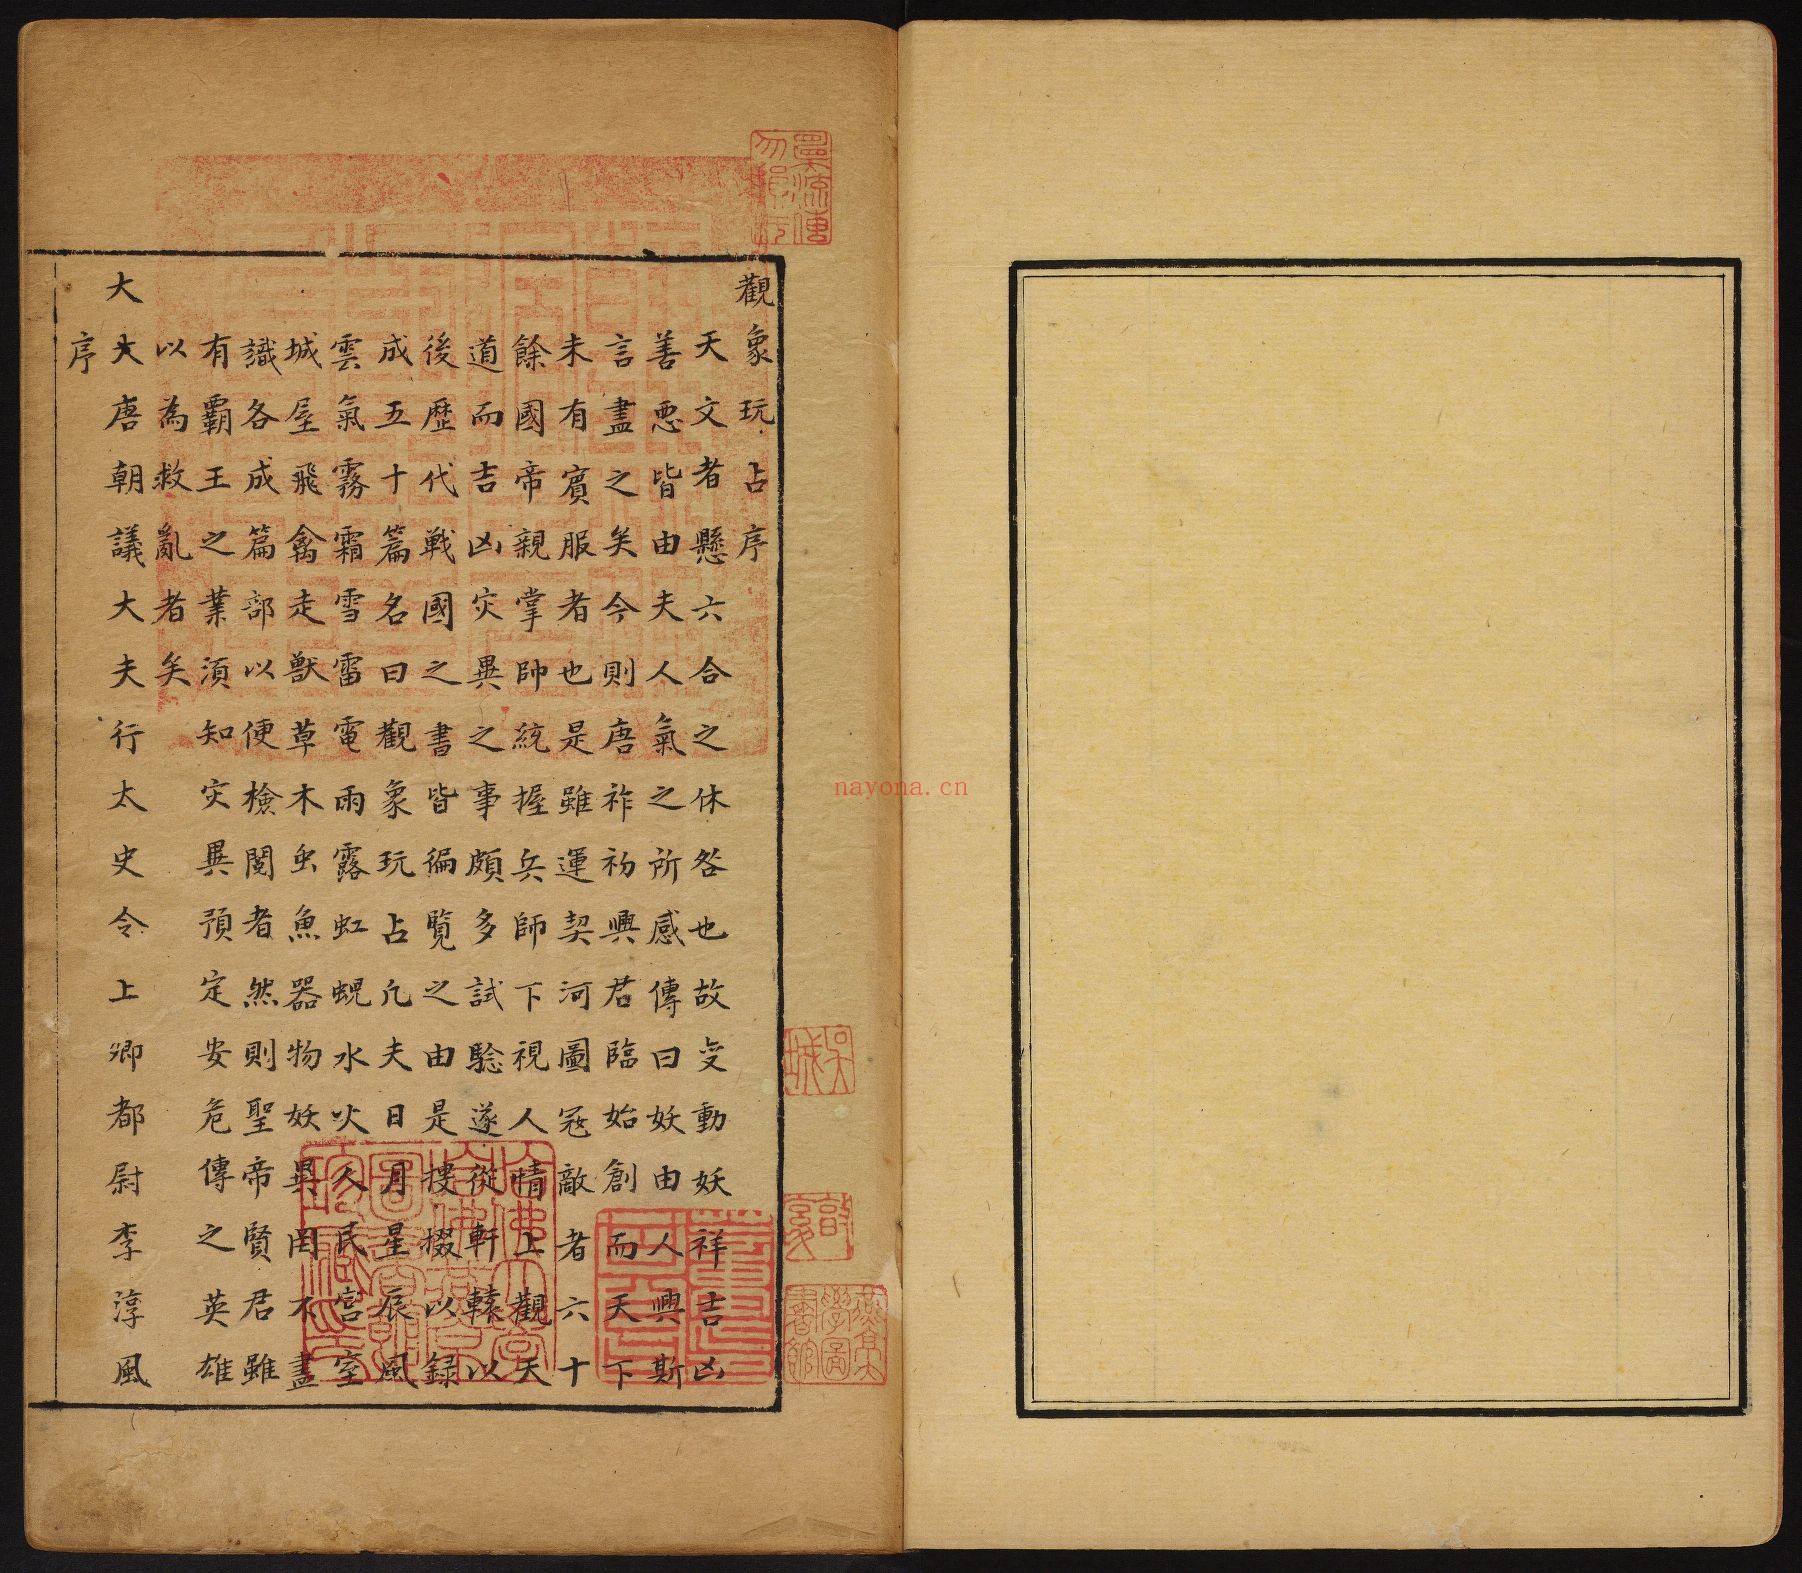 觀象玩占序
天文者懸六合之休咎也故變動妖祥吉凶
善惡皆由夫人氣之所感傳曰妖由人興斯
言盡之矣今則唐祚初興君臨始創而天下
未有賓服者也是雖運契河圖冦敵者六十
餘國帝親掌帥統握兵師下視人情上觀天
道而吉凶灾異之事頗多試驗遂從軒轅以
後歷代戰國之書皆徧覽之由是搜掇以録
成五十篇名曰觀象玩占凢夫日月星辰風
雲氣霧霜雪雷電雨露虹蜺水火人民宮室
城屋飛禽走獸草木虫魚器物妖異罔不盡
識各成篇部以便檢閱者然則聖帝賢君雖
有霸王之業須知灾異預定安危傳之英雄
以為救亂者矣
大大唐朝議大夫行太史令上卿都尉李淳風
序
吳城
敦夏
nayona.cn